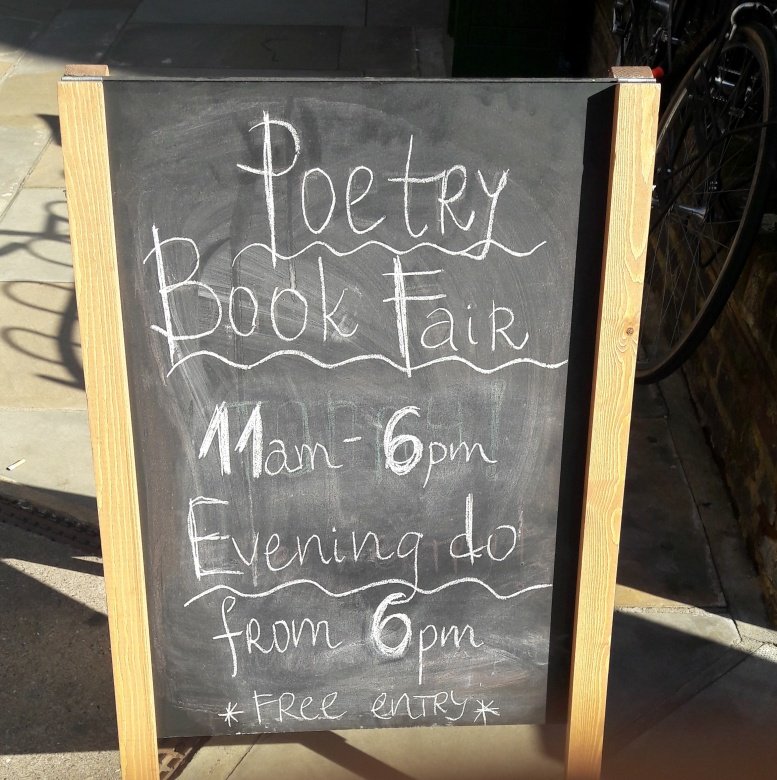 Poetry
Book Fair
11am - 6pm
Evening do
from 6pm
* FRee enTRY *